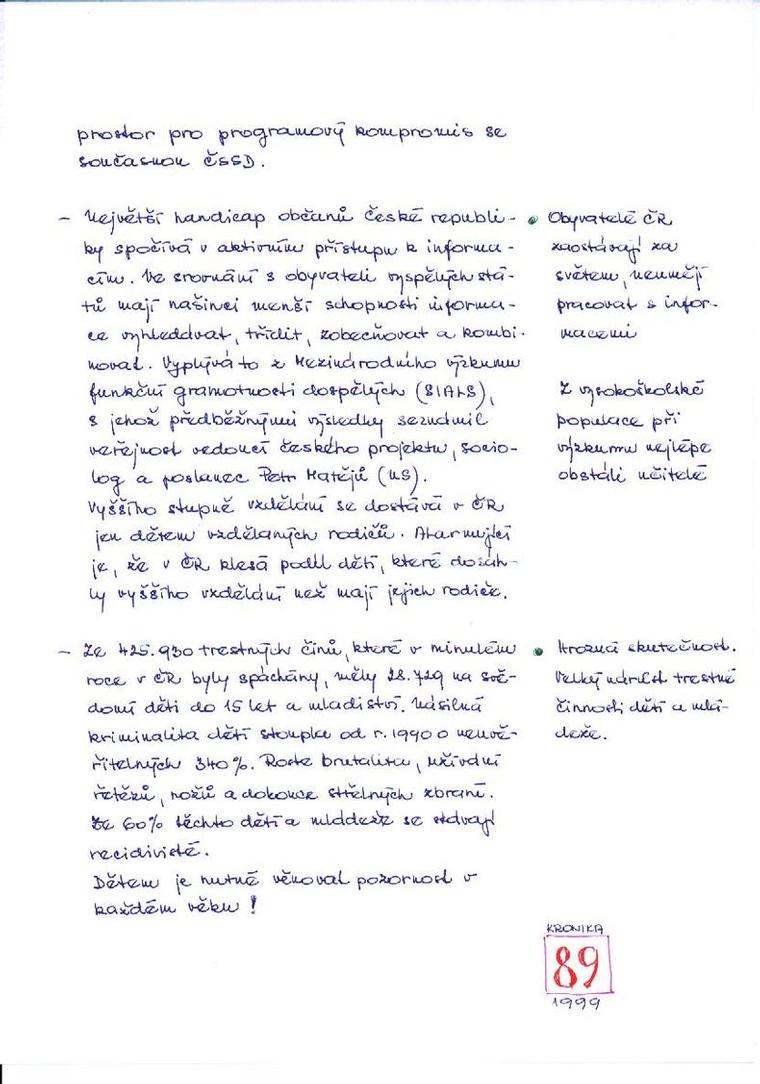 prostor pro programový kompromis se
současnou ČSSD.
– Největší handicap občanů České republi-
ky spočívá v aktivním přístupu k informa-
cím. Ve srovnání s obyvateli vyspělých stá-
tů mají našinci menší schopnosti informa-
ce vyhledávat, třídit, zobecňovat a kombi-
novat. Vyplývá to z Mezinárodního výzkumu
funkční gramotnosti dospělých (SIALS),
s jehož předběžnými výsledky seznámil
veřejnost vedoucí českého projektu, socio-
log a poslanec Petr Matějů (US).
Vyššího stupně vzdělání se dostává v ČR
jen dětem vzdělaných rodičů. Alarmující
je, že v ČR klesá podíl dětí, které dosáh-
ly vyššího vzdělání než mají jejich rodiče.
• Obyvatelé ČR
zaostávají za
světem, neumějí
pracovat s infor-
macemi
Z vysokoškolské
populace při
výzkumu nejlépe
obstáli učitelé
– Ze 425.930 trestných činů, které v minulém
roce v ČR byly spáchány, měly 28.729 na svě-
domí děti do 15 let a mladiství. Násilná
kriminalita dětí stoupla od r. 1990 o neuvě-
řitelných 340%. Roste brutalita, užívání
řetězů, nožů a dokonce střelných zbraní.
Ze 60% těchto dětí a mládeže se stávají
recidivisté.
Dětem je nutné věnovat pozornost v
každém věku!
• Hrozná skutečnost.
Velký nárůst trestné
činnosti dětí a mlá-
deže.
KRONIKA
89
1999